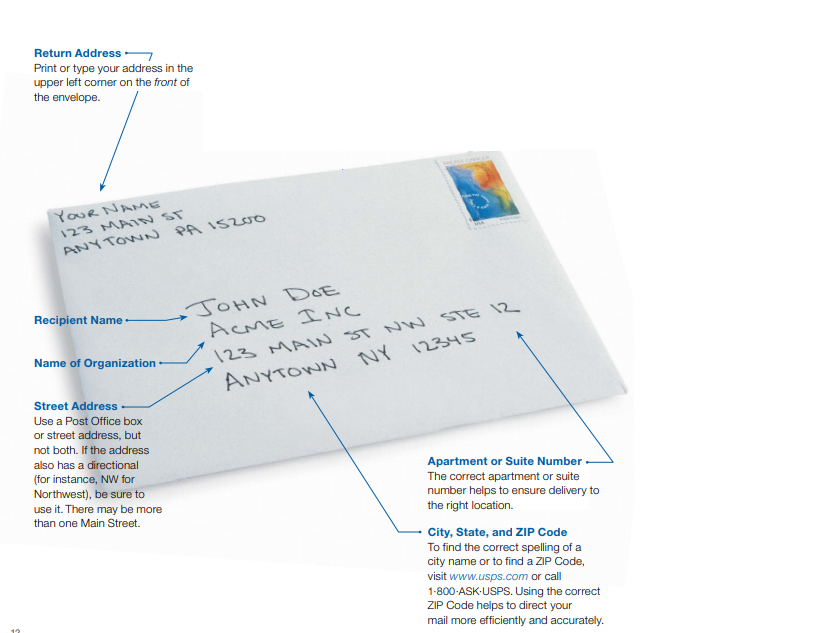 Return Address
Print or type your address in the
upper left corner on the front of
the envelope.
YOUR NAME
123 MAIN ST
ANYTOWN PA 15200
USA
JOHN DOE
ACME INC
123 MAIN ST NW STE 12
ANYTOWN NY 12345
Recipient Name
Name of Organization
Street Address
Use a Post Office box
or street address, but
not both. If the address
also has a directional
(for instance, NW for
Northwest), be sure to
use it. There may be more
than one Main Street.
Apartment or Suite Number
The correct apartment or suite
number helps to ensure delivery to
the right location.
City, State, and ZIP Code
To find the correct spelling of a
city name or to find a ZIP Code,
visit www.usps.com or call
1·800·ASK·USPS. Using the correct
ZIP Code helps to direct your
mail more efficiently and accurately.